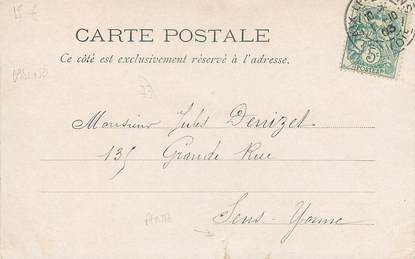 15 €
CARTE POSTALE
Ce côté est exclusivement réservé à l'adresse.
Monsieur Jules Denizet
135 Grande Rue
Sens-Yonne